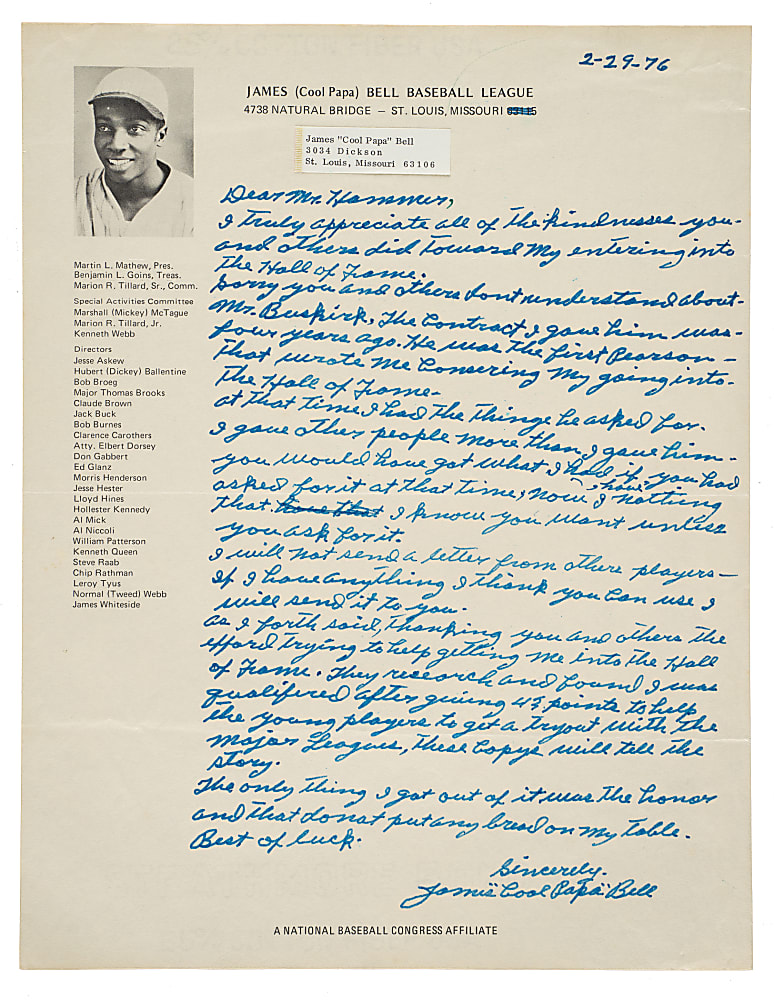 2-29-76
JAMES (Cool Papa) BELL BASEBALL LEAGUE
4738 NATURAL BRIDGE — ST. LOUIS, MISSOURI 63115
James "Cool Papa" Bell
3034 Dickson
St. Louis, Missouri 63106
Martin L. Mathew, Pres.
Benjamin L. Goins, Treas.
Marion R. Tillard, Sr., Comm.
Special Activities Committee
Marshall (Mickey) McTague
Marion R. Tillard, Jr.
Kenneth Webb
Directors
Jesse Askew
Hubert (Dickey) Ballentine
Bob Broeg
Major Thomas Brooks
Claude Brown
Jack Buck
Bob Burnes
Clarence Carothers
Atty. Elbert Dorsey
Don Gabbert
Ed Glanz
Morris Henderson
Jesse Hester
Lloyd Hines
Hollester Kennedy
Al Mick
Al Niccoli
William Patterson
Kenneth Queen
Steve Raab
Chip Rathman
Leroy Tyus
Normal (Tweed) Webb
James Whiteside
Dear Mr. Hammer,
I truly appreciate all of the kindnesses you-
and others did toward my entering into
the Hall of Frame.
Sorry you and others dont understand about-
Mr. Buskirk. The Contract I gave him was-
four years ago. He was the first Pearson-
that wrote me Consering my going into-
the Hall of Frame-
at that time I had the things he asked for.
I gave other people more than I gave him-
you would have got what I had if you had
asked for it at that time, now I have nothing
that I know you want unless
you ask for it.
I will not send a letter from other players-
If I have anything I think you can use I
will send it to you.
as I forth said, thanking you and others the
efford trying to help getting me into the Hall
of Frame. They research and found I was
qualifired after giving 43 points to help
the young players to get a tryout with the
Major Leagues, these Copys will tell the
story.
The only thing I got out of it was the honor
and that do not put any bread on my table.
Best of luck.
Sincerely.
James "Cool Papa" Bell
A NATIONAL BASEBALL CONGRESS AFFILIATE